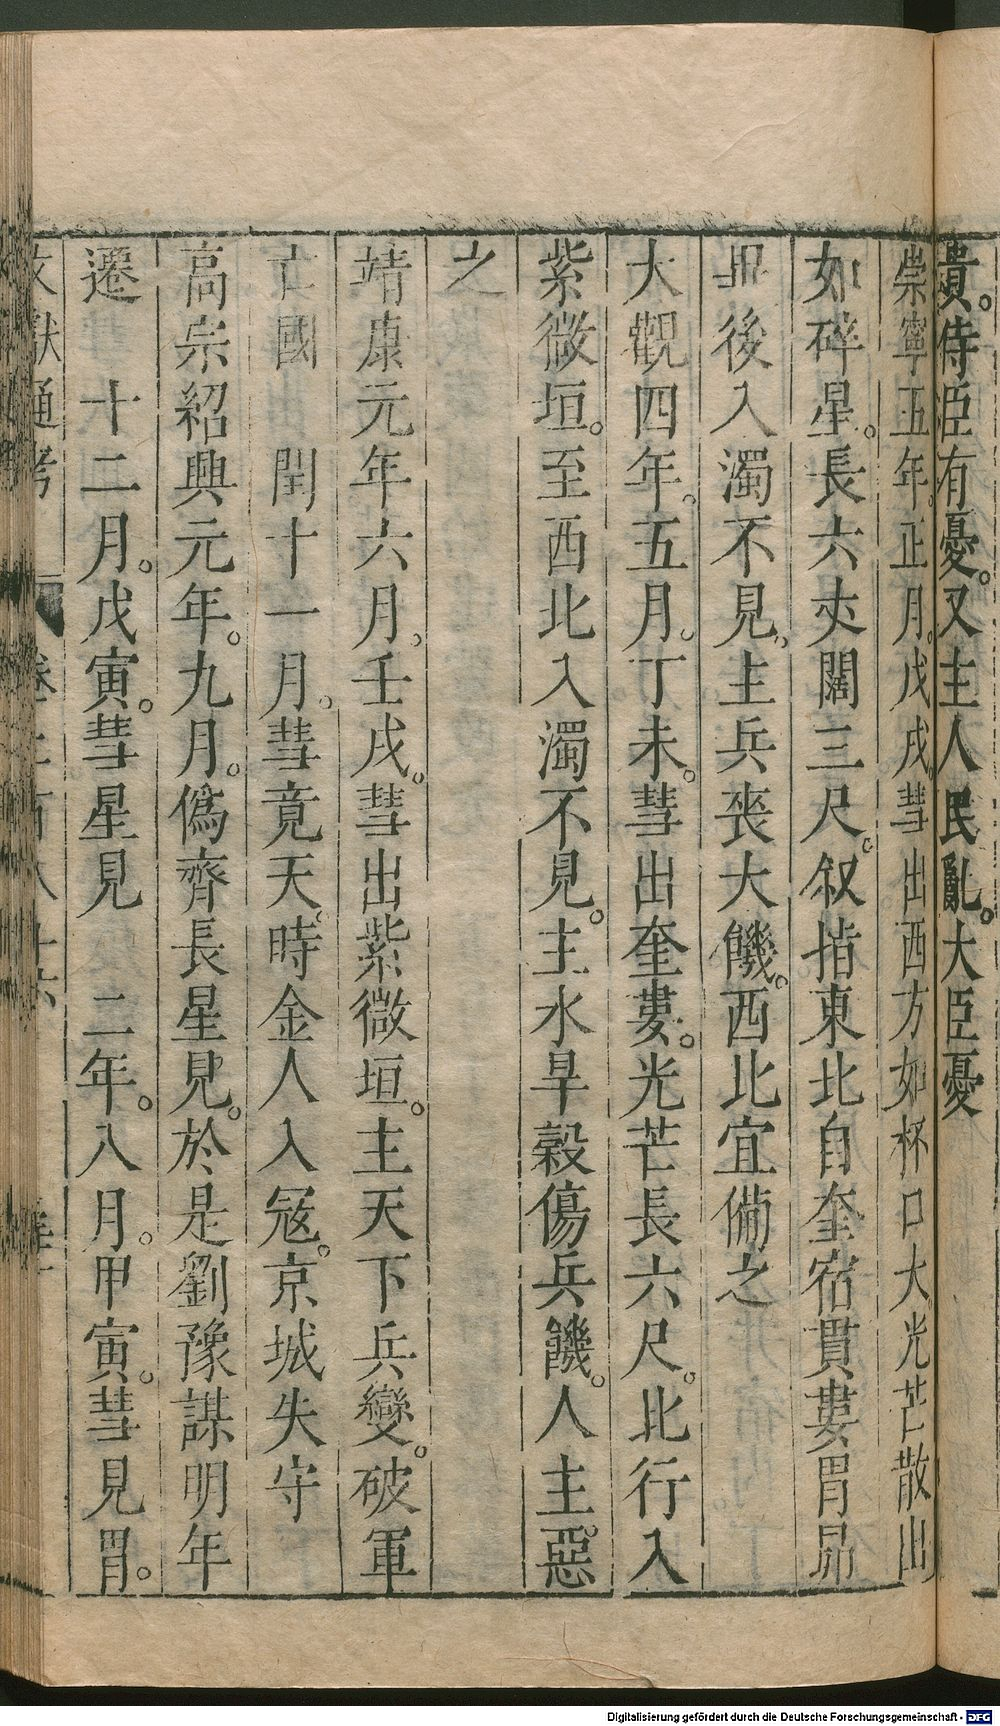 貴。侍臣有憂。又主人民亂。大臣憂
崇寧五年。正月。戊戌。彗出西方如杯口大光芒散出
如碎星。長六丈闊三尺。叙指東北自奎宿貫婁胃昴
畢後入濁不見。主兵喪大饑。西北宜備之
大觀四年。五月。丁未。彗出奎婁。光芒長六尺。北行入
紫微垣。至西北入濁不見。主水旱穀傷兵饑。人主惡
之
靖康元年六月。壬戌。彗出紫微垣。主天下兵變。破軍
亡國　閏十一月。彗竟天。時金人入寇。京城失守
高宗紹興元年。九月。偽齊長星見。於是劉豫謀明年
遷　十二月。戊寅。彗星見　二年。八月。甲寅。彗見胃。
文獻通考　卷二百八十六
Digitalisierung gefördert durch die Deutsche Forschungsgemeinschaft - DFG